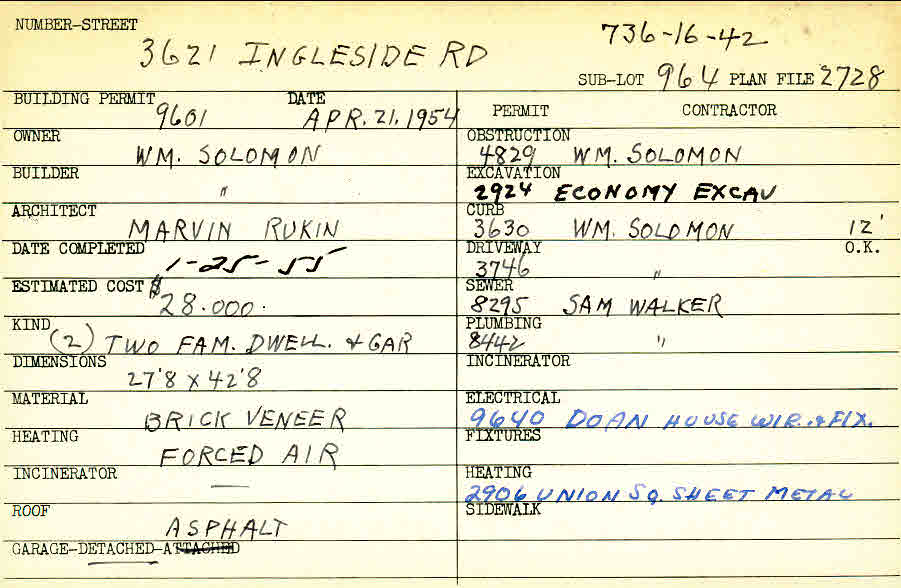 NUMBER-STREET
3621 INGLESIDE RD
736-16-42
SUB-LOT 964 PLAN FILE 2728
BUILDING PERMIT DATE
9601 APR. 21. 1954
OWNER
WM. SOLOMON
BUILDER
"
ARCHITECT
MARVIN RUKIN
DATE COMPLETED
1-25-55
ESTIMATED COST $
28.000.
KIND
(2) TWO FAM. DWELL. & GAR
DIMENSIONS
27'8 X 42'8
MATERIAL
BRICK VENEER
HEATING
FORCED AIR
INCINERATOR
—
ROOF
ASPHALT
GARAGE-DETACHED-ATTACHED
PERMIT CONTRACTOR
OBSTRUCTION
4829 WM. SOLOMON
EXCAVATION
2924 ECONOMY EXCAV
CURB
3630 WM. SOLOMON 12'
DRIVEWAY O.K.
3746 "
SEWER
8295 SAM WALKER
PLUMBING
8442 "
INCINERATOR
ELECTRICAL
9640 DOAN HOUSE WIR. & FIX.
FIXTURES
HEATING
2906 UNION SQ. SHEET METAL
SIDEWALK